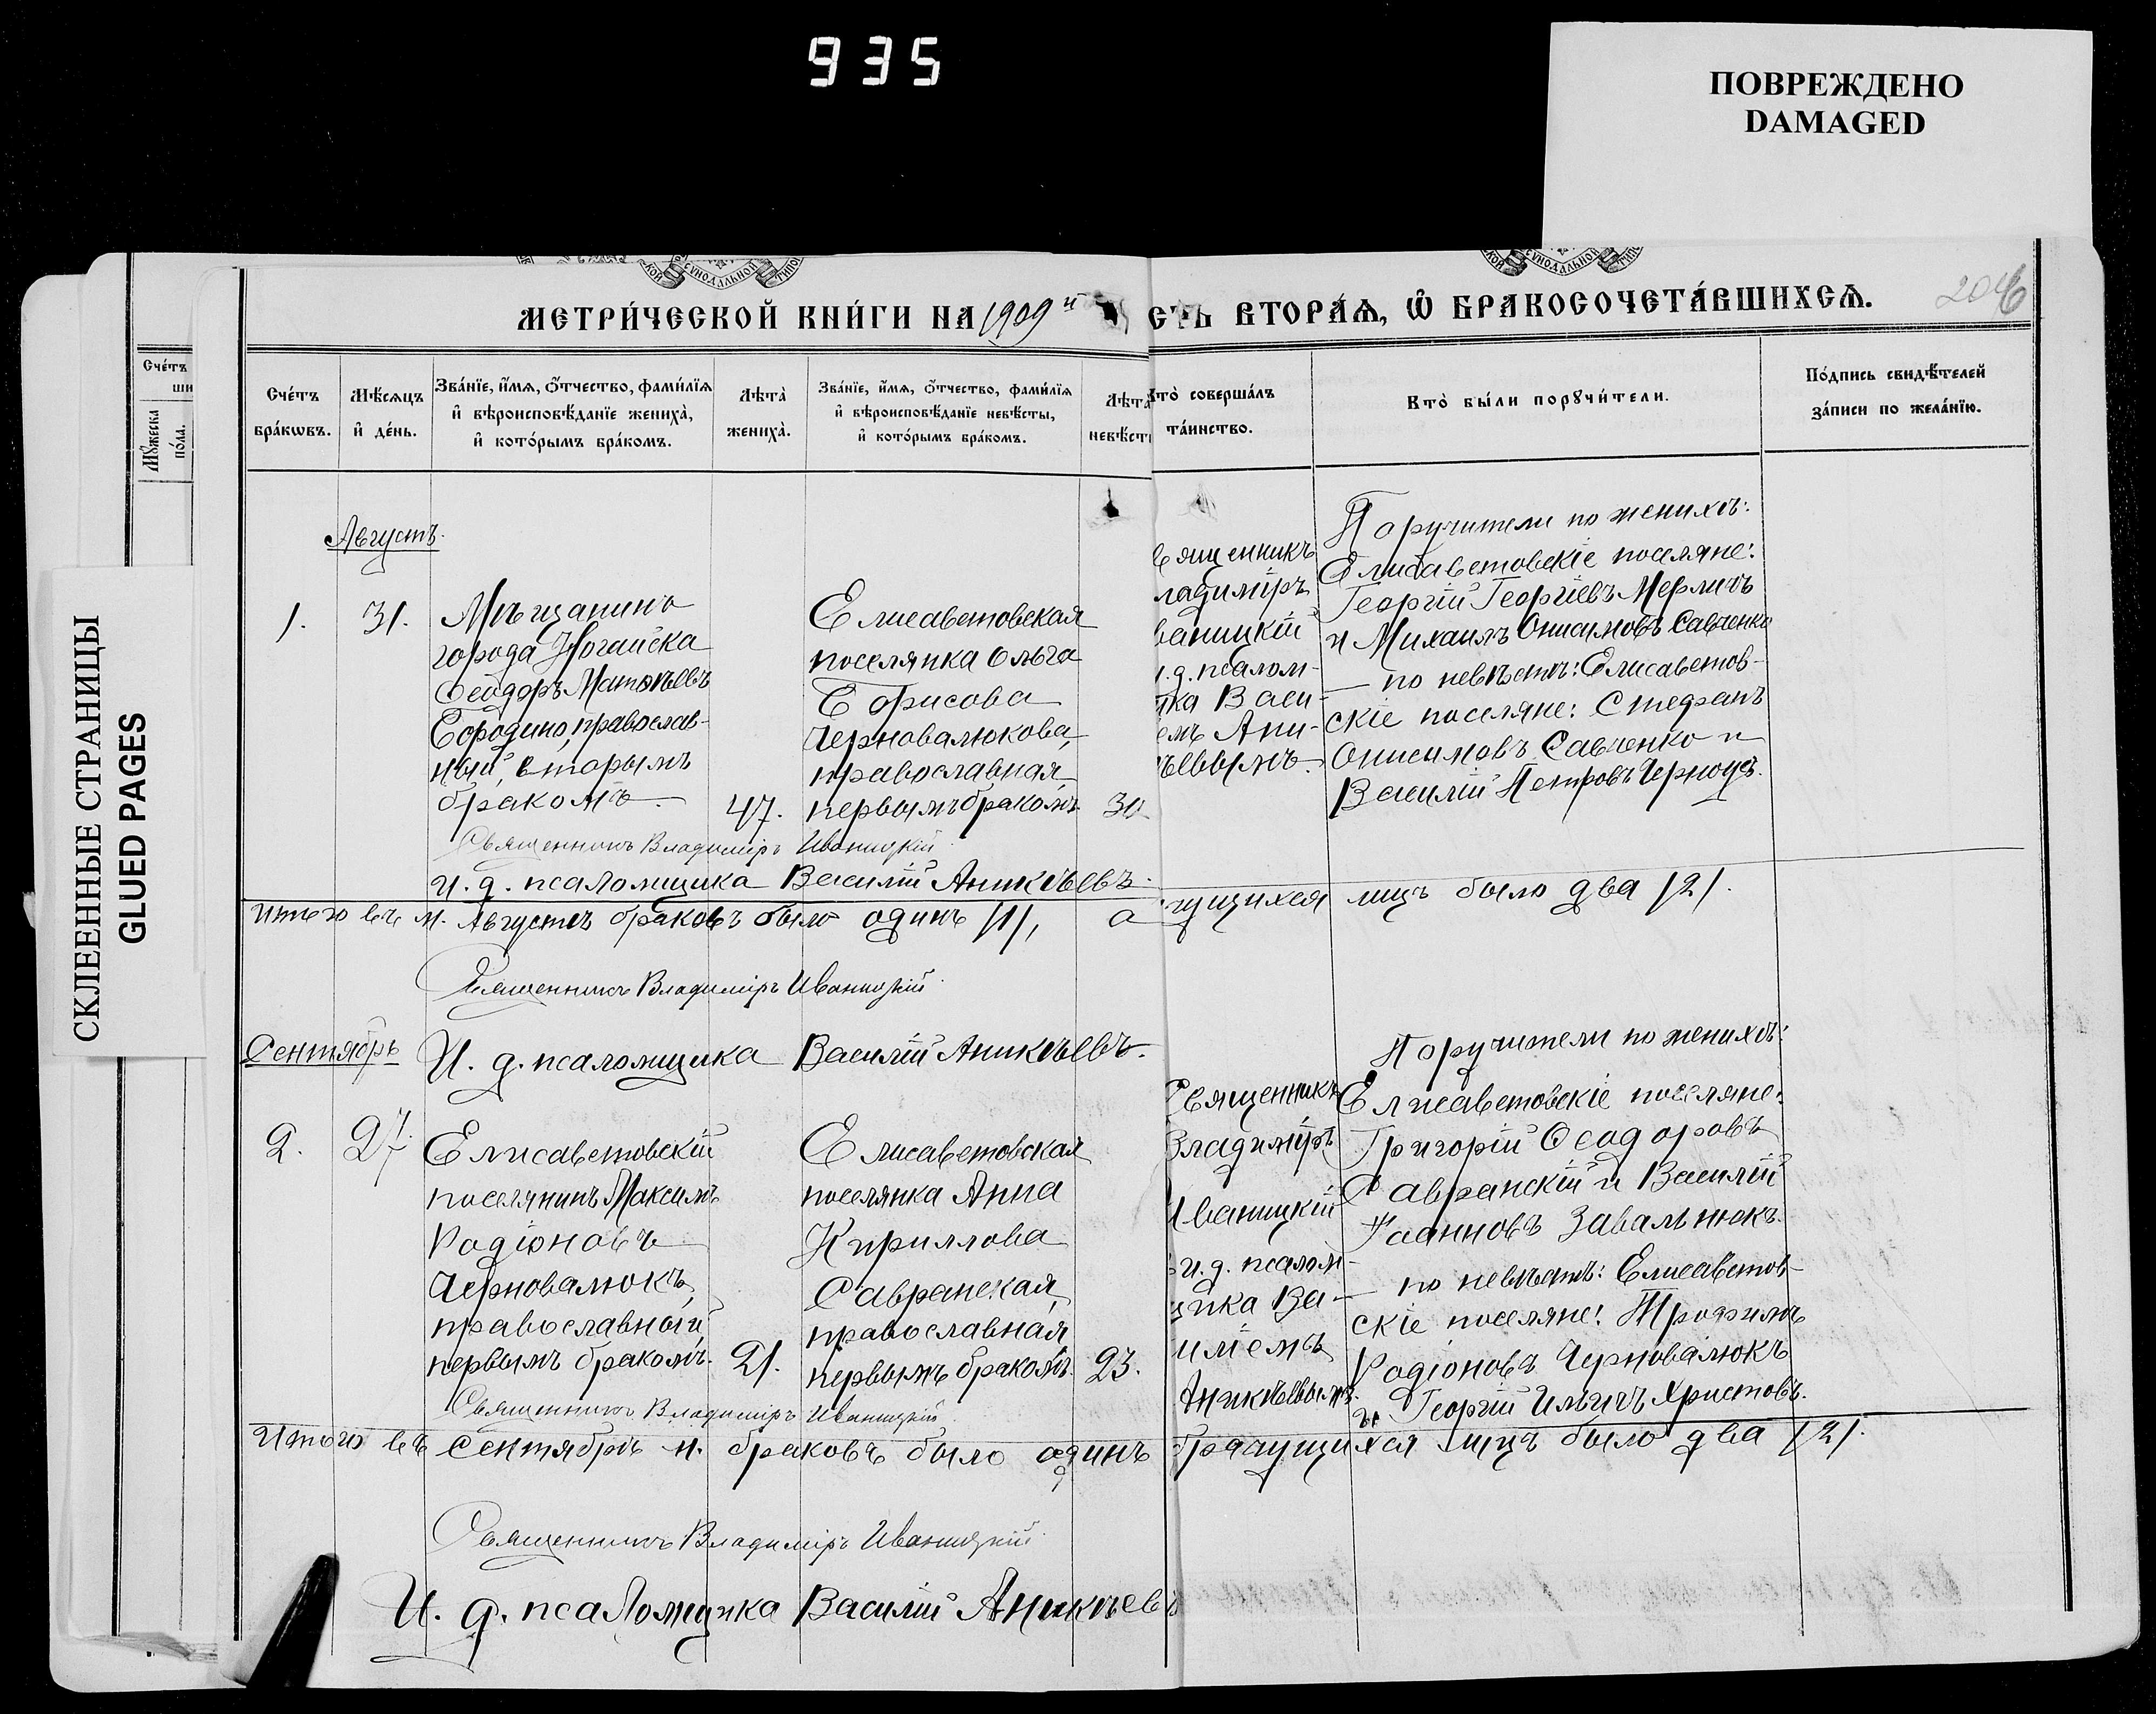 935
ПОВРЕЖДЕНО
DAMAGED
СКЛЕЕННЫЕ СТРАНИЦЫ
GLUED PAGES
МЕТРИ́ЧЕСКОЙ КНИ́ГИ НА 1909 й
СТЬ ВТОРА́Ѧ, Ѽ БРАКОСОЧЕТА́ВШИХСѦ.
Сче́тъ
Мꙋ́жеска
по́ла.
Сче́тъ
бра́кѡвъ.
Мѣ́сѧцъ
и҆ де́нь.
Зва́нїе, и҆́мѧ, ѻ҆́тчество, фами́лїѧ
и҆ вѣроисповѣ́данїе жениха̀,
и҆ кото́рымъ бра́комъ.
Лѣ́та̀
жениха̀.
Зва́нїе, и҆́мѧ, ѻ҆́тчество, фами́лїѧ
и҆ вѣроисповѣ́данїе невѣ́сты,
и҆ кото́рымъ бра́комъ.
Лѣ́та
невѣ́ст
то̀ соверша́лъ
та́инство.
Кто̀ бы́ли порꙋчи́тели.
По́дпись свидѣ́телей
за́писи по жела́нїю.
Августъ.
1.
31.
Мѣщанинъ
города Ногайска
Ѳеодоръ Матвѣевъ
Бородино, православ-
ный, вторымъ
бракомъ.
47.
Елисаветовская
поселянка Ольга
Борисова
Черновалюкова,
православная
первымъ бракомъ
30
вященникъ
ладиміръ
ваницкій
и.д. псалом-
ика Васи-
емъ Ани-
ѣевымъ.
Поручители по женихѣ:
Елисаветовскіе поселяне:
Георгій Георгіевъ Мерличъ
и Михаилъ Онисимовъ Савченко
— по невѣстѣ: Елисаветов-
скіе поселяне: Стефанъ
Онисимовъ Савченко и
Василій Петровъ
Священникъ Владиміръ Иваницкій
И. д. псаломщика Василій Аникѣевъ.
Итого въ м. Августѣ браковъ было одинъ /1/, а
щихся лицъ было два /2/.
Священникъ Владиміръ Иваницкій.
И. д. псаломщика Василій Аникѣевъ.
Сентябрь
2.
27
Елисаветовскій
поселянинъ Максимъ
Родіоновъ
Черновалюкъ,
православный,
первымъ бракомъ.
21.
Елисаветовская
поселянка Анна
Кириллова
Савранская,
православная
первымъ бракомъ.
23.
Священникъ
Владиміръ
Иваницкій
и.д. псалом-
щика Ва-
иліемъ
Аникѣевымъ.
Поручители по женихѣ:
Елисаветовскіе поселяне:
Григорій Ѳеодоровъ
Савранскій и Василій
Іоанновъ Завальнюкъ.
— по невѣстѣ: Елисаветов-
скіе поселяне: Трофимъ
Родіоновъ Черновалюкъ
и Георгій Ильичъ Христовъ.
Священникъ Владиміръ Иваницкій.
Итого въ Сентябрѣ м. браковъ было одинъ
брачущихся лицъ было два /2/.
Священникъ Владиміръ Иваницкій.
И. д. псаломщика Василій Аникѣевъ